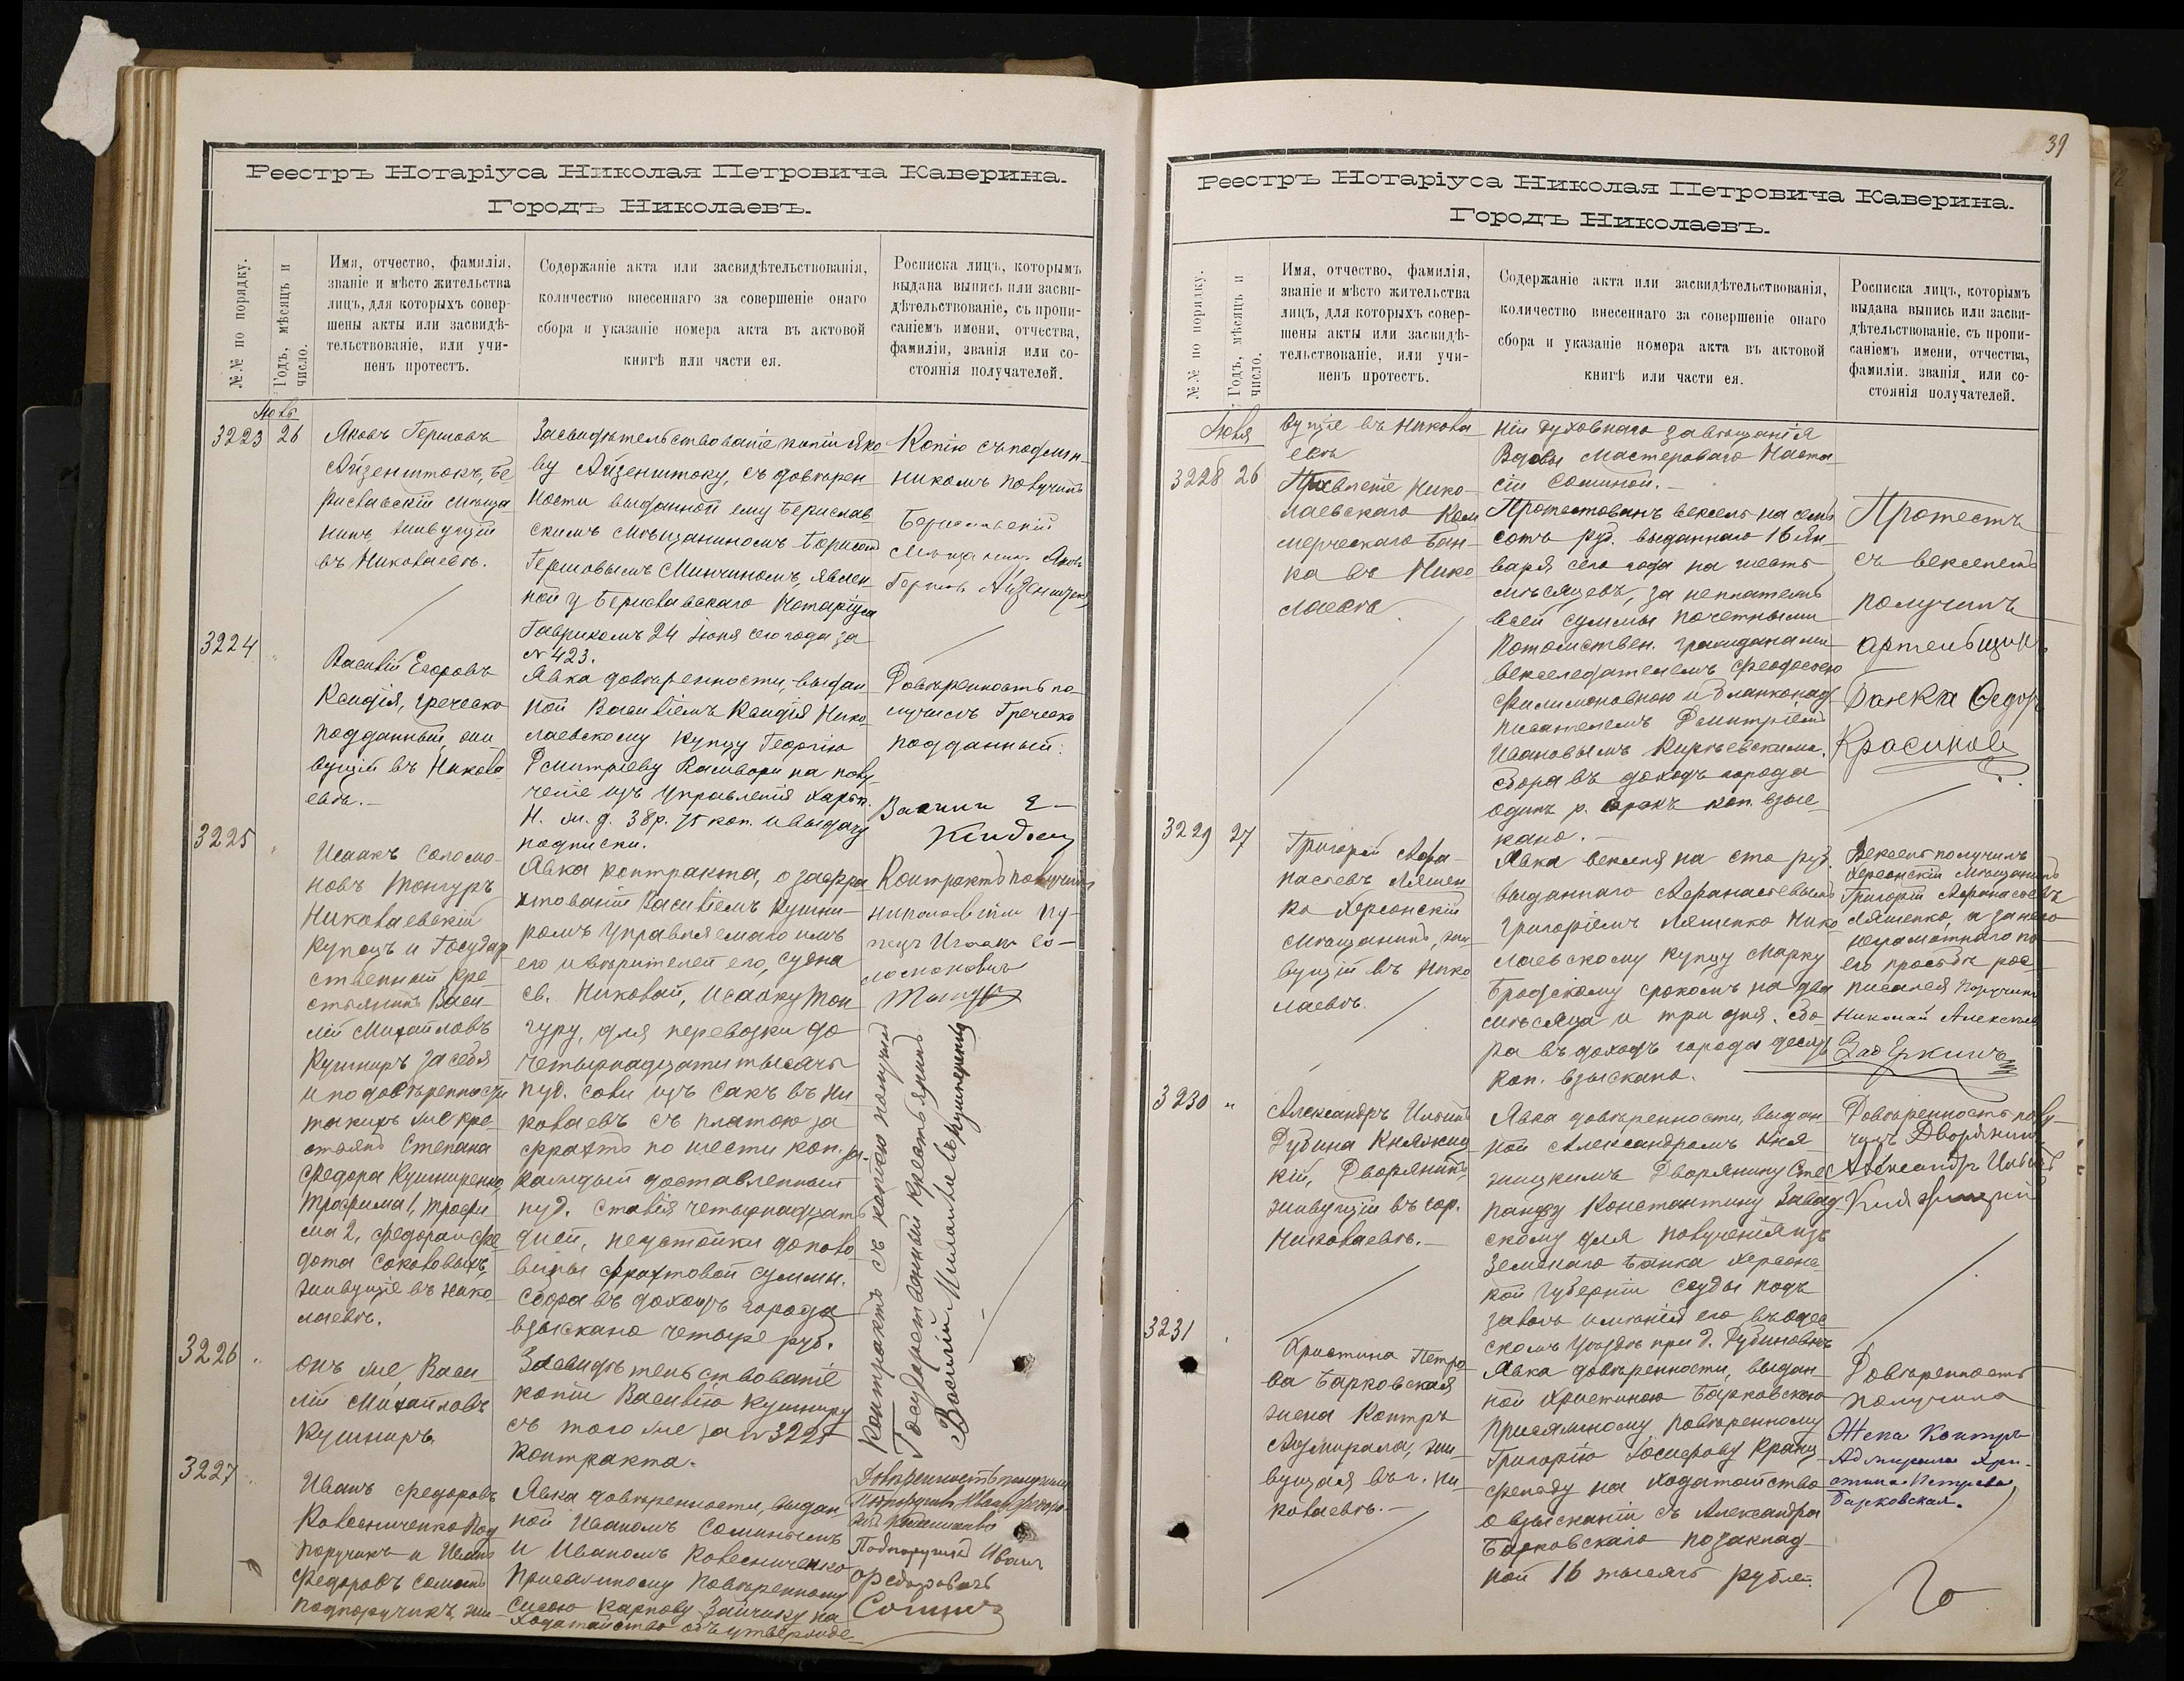 39
Реестръ Нотаріуса Николая Петровича Каверина.
Городъ Николаевъ.
№№ по порядку.
Годъ, мѣсяцъ и
число.
Имя, отчество, фамилія,
званіе и мѣсто жительства
лицъ, для которыхъ совер-
шены акты или засвидѣ-
тельствованіе, или учи-
ненъ протестъ.
Содержаніе акта или засвидѣтельствованія,
количество внесеннаго за совершеніе онаго
сбора и указаніе номера акта въ актовой
книгѣ или части ея.
Росписка лицъ, которымъ
выдана выпись или засви-
дѣтельствованіе, съ пропи-
саніемъ имени, отчества,
фамиліи, званія или со-
стоянія получателей.
3223 26
Яковъ Гершовъ
Айзенштокъ, Бе
риславскій мѣща
нинъ, живущій
въ Николаевѣ.
Засвидѣтельствованіе копіи Яко
ву Айзенштоку, съ довѣрен
ности выданной ему Берислав
скимъ мѣщаниномъ Борисомъ
Гершовымъ Минчиномъ, явлен
ной у Бериславскаго Нотаріуса
Гаврикомъ 24 Іюня сего года за
№ 423.
Копію съ подлин-
никомъ получилъ
Бериславскій
мѣщанинъ Яковъ
Гершовъ Айзенштокъ
3224
Василій Егоровъ
Кандія, греческо
подданный, жи
вущій въ Никола
евѣ.—
Явка довѣренности, выдан
ной Василіемъ Кандія Нико
лаевскому купцу Георгію
Дмитріеву Валивари на полу
ченіе изъ Управленія Харьк.
Н. ж. д. 38 р. 75 коп. и выдачу
подписки.
Довѣренность по
лучилъ Греческо
подданный:
3225
Исаакъ Соломо
новъ Тонгуръ
Николаевскій
купецъ и Государ
ственный кре
стьянинъ Васи
лій Михайловъ
Кушниръ за себя
и по довѣренности
такихъ же кре
стьянъ Степана
Федора Кушниренко,
Трофима 1, Трофи
ма 2, Федора и Фе
дота Соколовыхъ,
живущіе въ Нико
лаевѣ.
Явка контракта, о зафра
хтованіи Василіемъ Кушни-
ромъ управляемаго имъ
его и вѣрителей его, судна
св. Николай, Исааку Тон
гуру, для перевозки до
четырнадцати тысячъ
пуд. соли изъ Сакъ въ Ни
колаевъ съ платою за
фрахтъ по шести коп. за
каждый доставленный
пуд. Сталія четырнадцать
дней, неустойки до поло
вины фрахтовой суммы.
Сбора въ доходъ города
взыскано четыре руб.
Контрактъ получилъ
Николаевскій Ку-
пецъ Исаакъ Со-
ломоновичъ
Тонгуръ
Контрактъ съ копіею получилъ
Государственный крестьянинъ
Василій Михайловъ Кушниренко
3226
Онъ же, Васи
лій Михайловъ
Кушниръ.
Засвидѣтельствованіе
копіи Василію Кушниру
съ того же за № 3225
контракта.
3227
Иванъ Федоровъ
Колесниченко Под
поручикъ и Иванъ
Федоровъ Соминъ
подпоручикъ, жи
Явка довѣренности, выдан
ной Иваномъ Соминымъ
и Иваномъ Колесниченко
Присяжному повѣренному
Сысою Карпову Зайчику на
ходатайство объ утвержде
Довѣренность получили
Подпоручикъ Иванъ
Федоровичъ
Соминъ
Реестръ Нотаріуса Николая Петровича Каверина.
Городъ Николаевъ.
№№ по порядку.
Годъ, мѣсяцъ и
число.
Имя, отчество, фамилія,
званіе и мѣсто жительства
лицъ, для которыхъ совер-
шены акты или засвидѣ-
тельствованіе, или учи-
ненъ протестъ.
Содержаніе акта или засвидѣтельствованія,
количество внесеннаго за совершеніе онаго
сбора и указаніе номера акта въ актовой
книгѣ или части ея.
Росписка лицъ, которымъ
выдана выпись или засви-
дѣтельствованіе, съ пропи-
саніемъ имени, отчества,
фамиліи, званія или со-
стоянія получателей.
вущіе въ Никола
евѣ
ніи духовнаго завѣщанія
Вдовы Мастероваго Наста
сіи Соминой.—
3228 26
Правленіе Нико-
лаевскаго Ком
мерческаго Бан-
ка въ Нико
лаевѣ
Протестованъ вексель на семь
сотъ руб. выданнаго 16 Ян-
варя сего года на шесть
мѣсяцевъ, за неплатежъ
всей суммы почетными
потомствен. гражданами
векселедателемъ Феодосіею
Филимоновною и бланконад
писателемъ Дмитріемъ
Ивановымъ Киріевскими.
Сбора въ доходъ города
одинъ р. сорокъ коп. взыс
кано.—
Протестъ
съ векселемъ
получилъ
артельщикъ
Банка Ѳедоръ
Красиковъ
3229 27
Григорій Афа-
насіевъ Ляшен
ко Херсонскій
мѣщанинъ, жи
вущій въ Нико
лаевѣ.
Явка векселя на сто руб.
выданнаго Афанасіевымъ
Григоріемъ Ляшенко Нико
лаевскому купцу Марку
Бродскому срокомъ на два
мѣсяца и три дня. Сбо-
ра въ доходъ города десять
коп. взыскано.
Вексель получилъ
Херсонскій мѣщанинъ
Григорій Афанасіевъ
Ляшенко, а за него
неграмотнаго по
его просьбѣ рос
писался Поручикъ
Николай Алексѣевъ
3230 "
Александръ Ильинъ
Дубина Княжиц
кій, Дворянинъ,
живущій въ гор.
Николаевѣ.—
Явка довѣренности, выдан
ной Александромъ Кня
жицкимъ Дворянину Сте
пану Константину Завад
скому для полученія изъ
Земскаго Банка Херсонс
кой Губерніи ссуды подъ
залогъ имѣнія его въ Одес
скомъ уѣздѣ при д. Дубиновкѣ
Довѣренность полу-
чилъ Дворянинъ
Александръ Ильинъ
Княжицкій
3231
Христина Петро
ва Барковская
жена Контръ
Адмирала, жи-
вущая въ г. Ни
колаевѣ.—
Явка довѣренности, выдан
ной Христиною Барковскою
Присяжному повѣренному
Григорію Іосифову Кранц
фельду на ходатайство
о взысканіи съ Александра
Барковскаго по заклад-
ной 16 тысячъ рублей.
Довѣренность
получила
Жена Контръ
Адмирала Хри-
стина Петрова
Барковская.